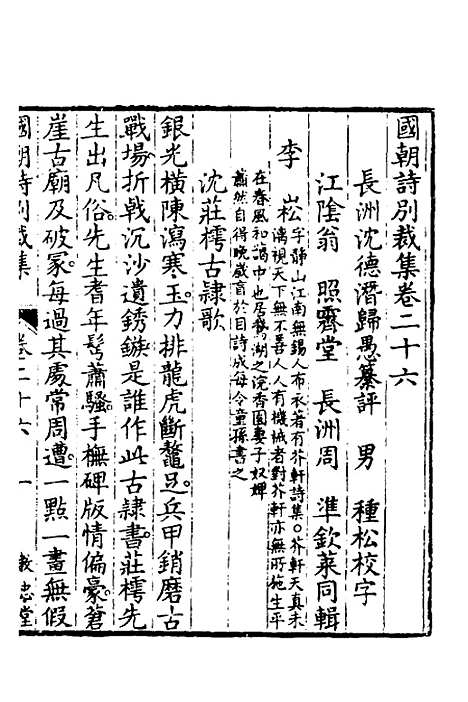 國朝詩別裁集卷二十六
長洲沈德潛歸愚纂評　男　種松校字
江陰翁　照霽堂　長洲周　準欽萊同輯
李　崧字靜山江南無錫人布衣著有芥軒詩集○芥軒天真未
漓視天下無不善人人有機械者對芥軒亦無所施生平
在春風和謁中也居鵞湖之浣香園妻子奴婢
蕭然自得晚歲盲於目詩成每令童孫書之
沈莊樗古隸歌
銀光橫陳瀉寒玉力排龍虎斷鼇足兵甲銷磨古
戰場折戟沉沙遺銹鏃是誰作此古隸書莊樗先
生出凡俗先生耆年髩蕭騷手橅碑版情偏豪蒼
崖古廟及破冢每過其處常周遭一點一畫無假
國朝詩別裁集　卷二十六　一　教忠堂